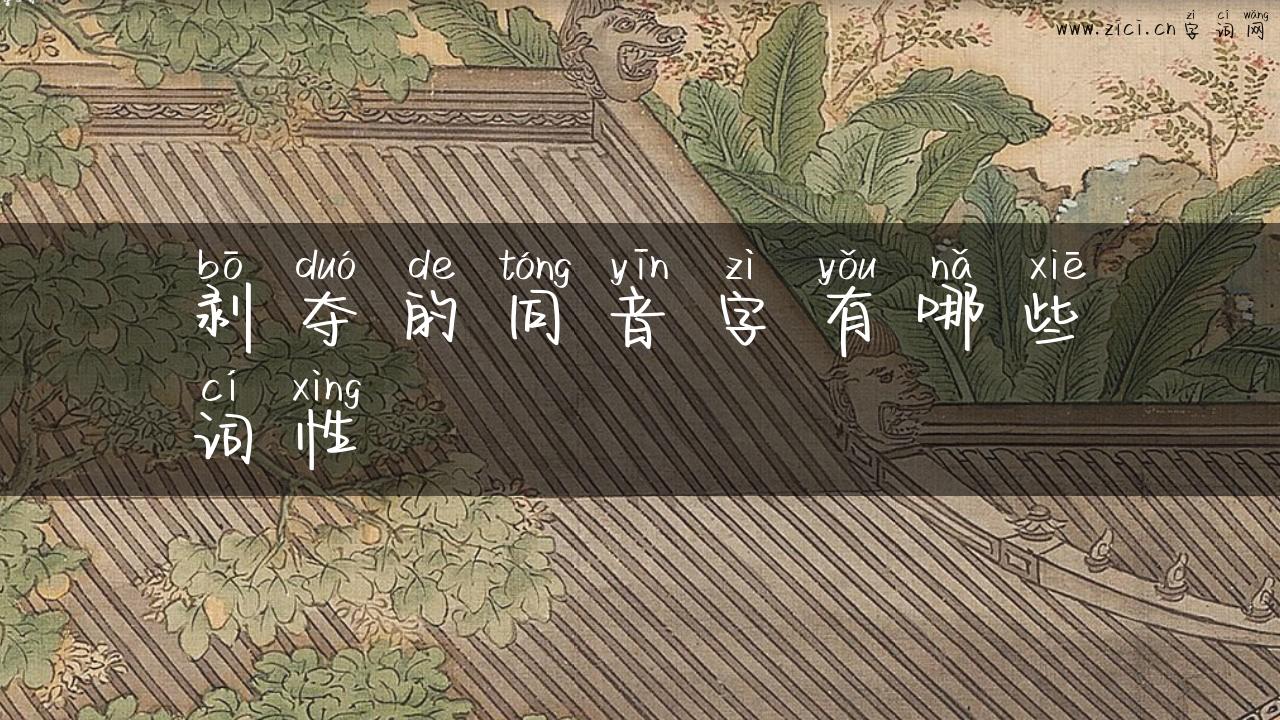 zì cí wǎng
www.zici.cn 字 词 网
bō duó de tóng yīn zì yǒu nǎ xiē
剥 夺 的 同 音 字 有 哪 些
cí xìng
词 性